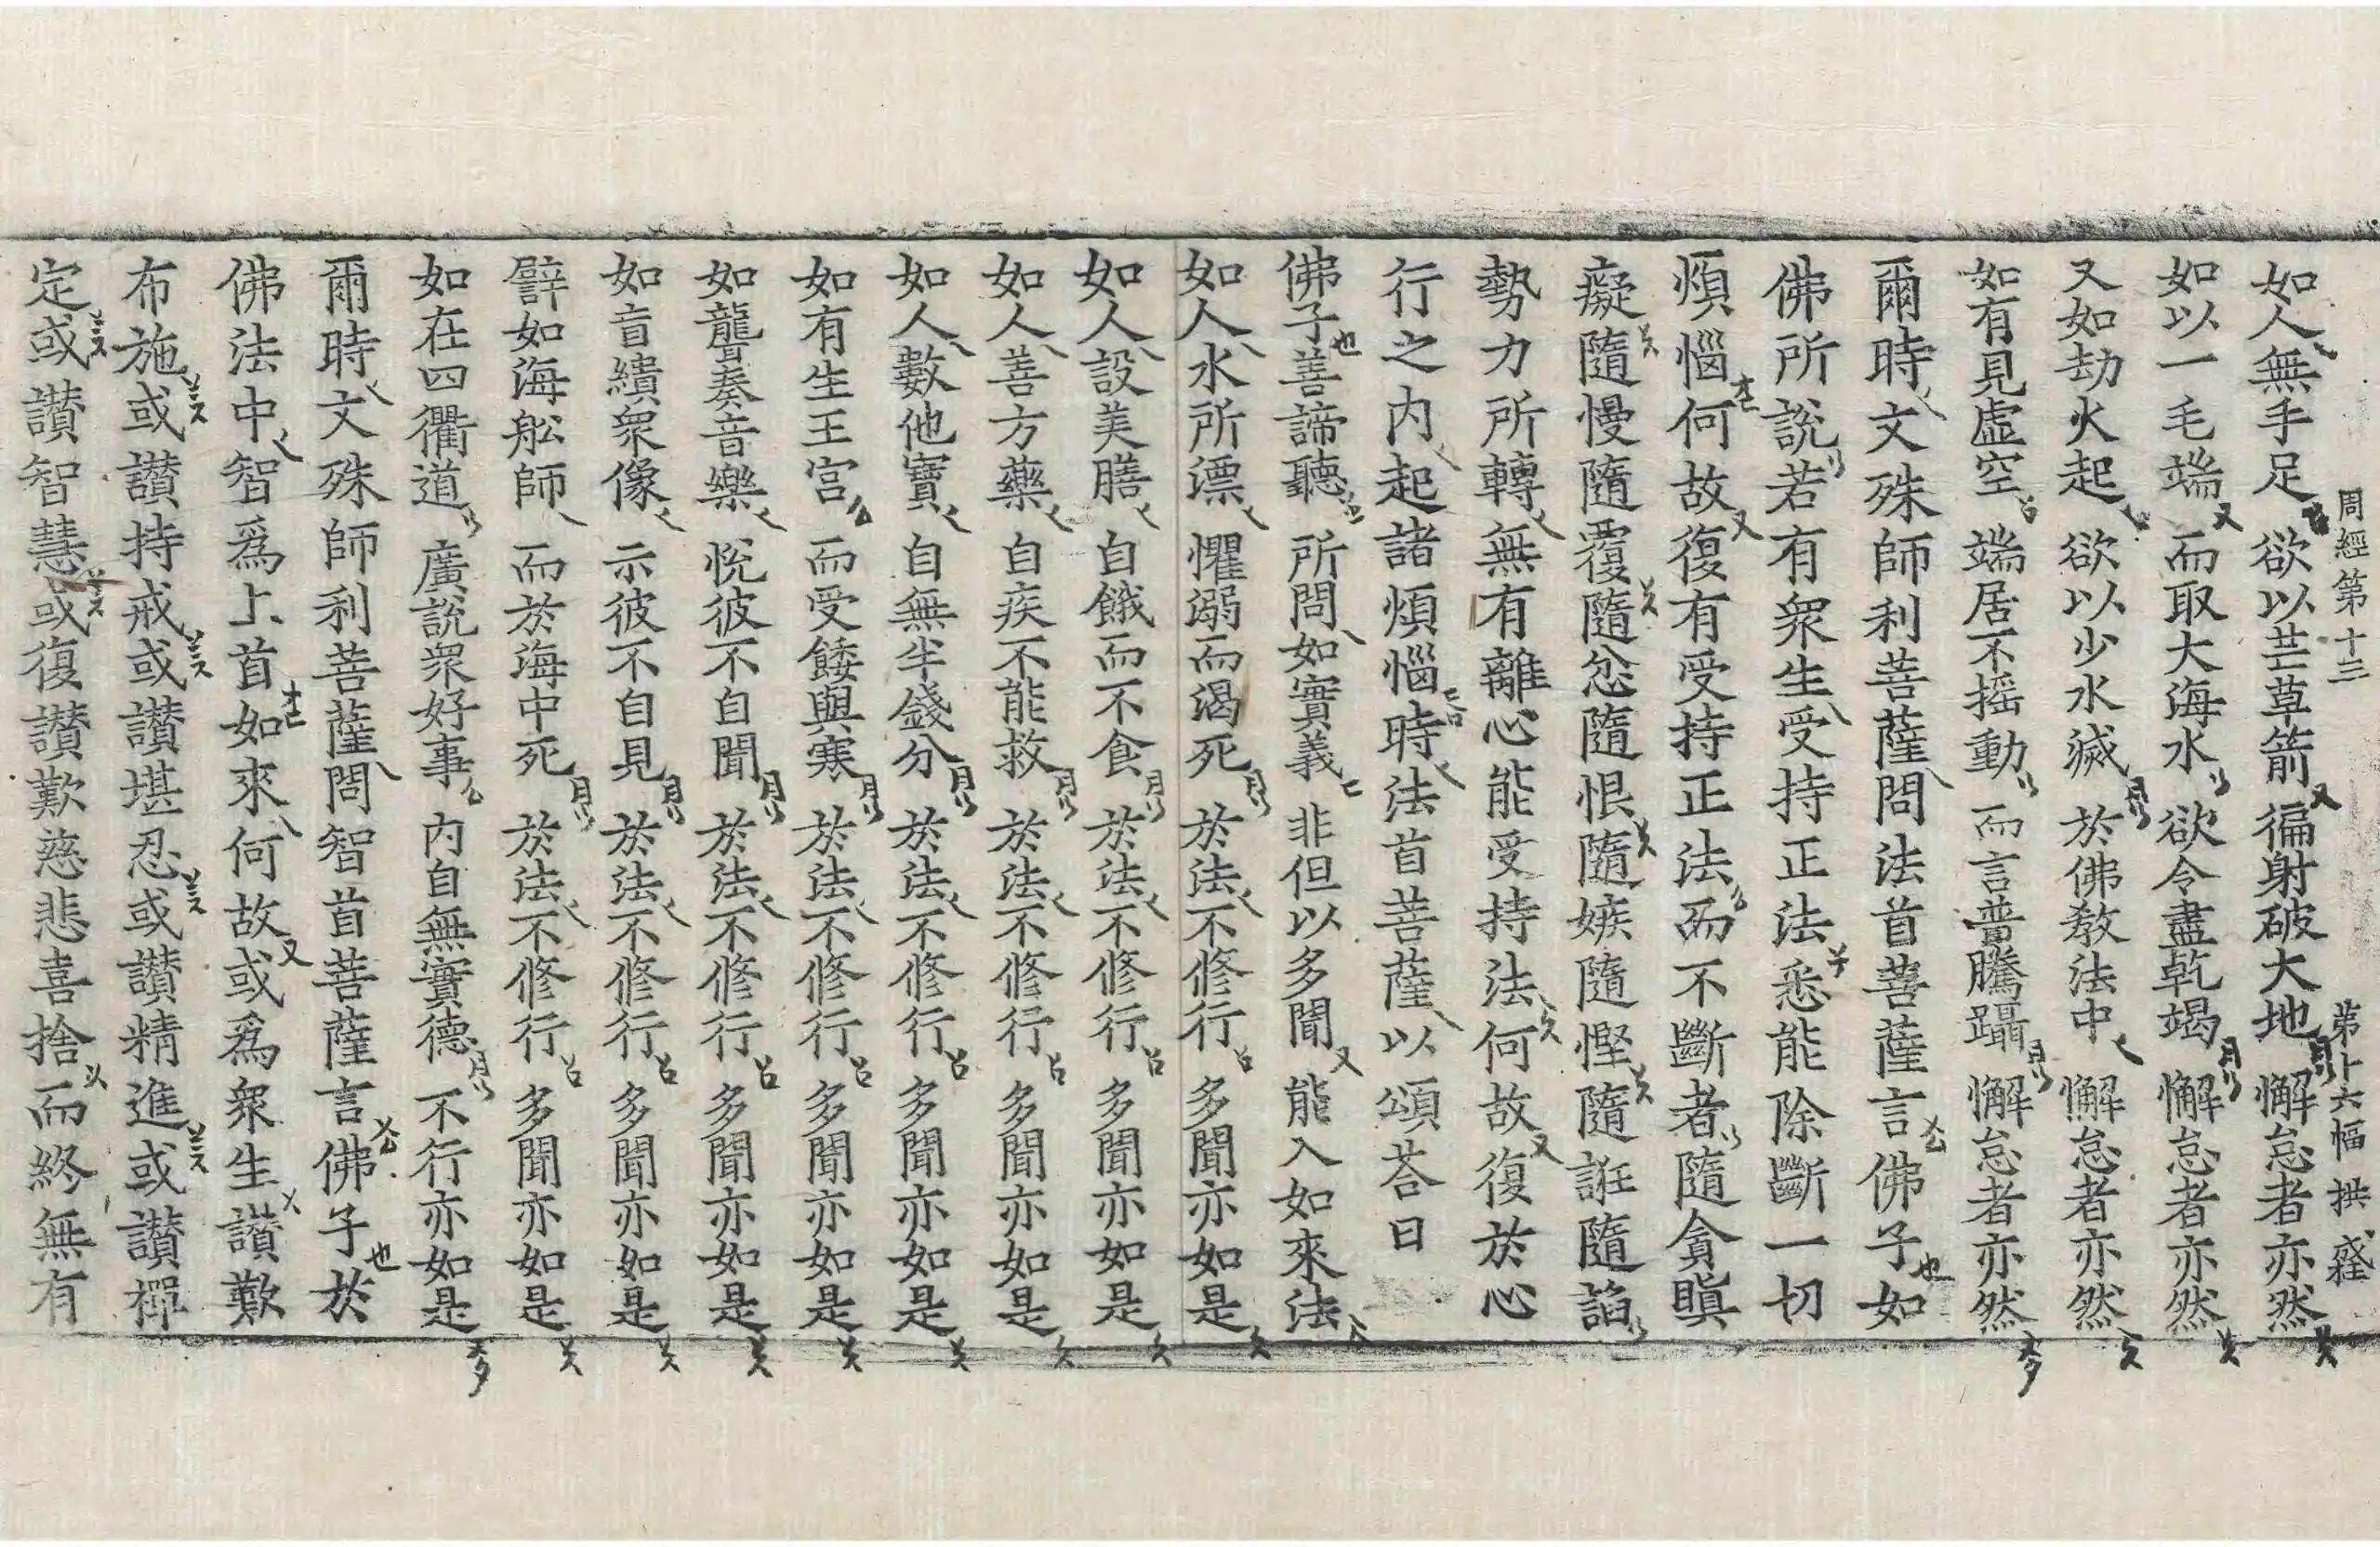 周經第十三 第十六幅 拱 戒桎
如人無手足欲以芒草箭徧射破大地懈怠者亦然
如以一毛端而取大海水欲令盡乾竭懈怠者亦然
又如劫火起欲以少水滅於佛教法中懈怠者亦然
如有見虛空端居不搖動而言普騰躡懈怠者亦然
爾時文殊師利菩薩問法首菩薩言佛子也如
佛所說若有眾生受持正法悉能除斷一切
煩惱何故復有受持正法而不斷者隨貪瞋
癡隨慢隨覆隨忿隨恨隨嫉隨慳隨誑隨諂
勢力所轉無有離心能受持法何故復於心
行之內起諸煩惱時法首菩薩以頌荅曰
佛子也善諦聽所問如實義非但以多聞能入如來法
如人水所漂懼溺而渴死於法不修行多聞亦如是
如人設美膳自餓而不食於法不修行多聞亦如是
如人善方藥自疾不能救於法不修行多聞亦如是
如人數他寶自無半錢分於法不修行多聞亦如是
如有生王宮而受餧與寒於法不修行多聞亦如是
如聾奏音樂悅彼不自聞於法不修行多聞亦如是
如盲繢眾像示彼不自見於法不修行多聞亦如是
譬如海舩師而於海中死於法不修行多聞亦如是
如在四衢道廣說眾好事內自無實德不行亦如是
爾時文殊師利菩薩問智首菩薩言佛子也於
佛法中智為上首如來何故或為眾生讚歎
布施或讚持戒或讚堪忍或讚精進或讚禪
定或讚智慧或復讚歎慈悲喜捨而終無有